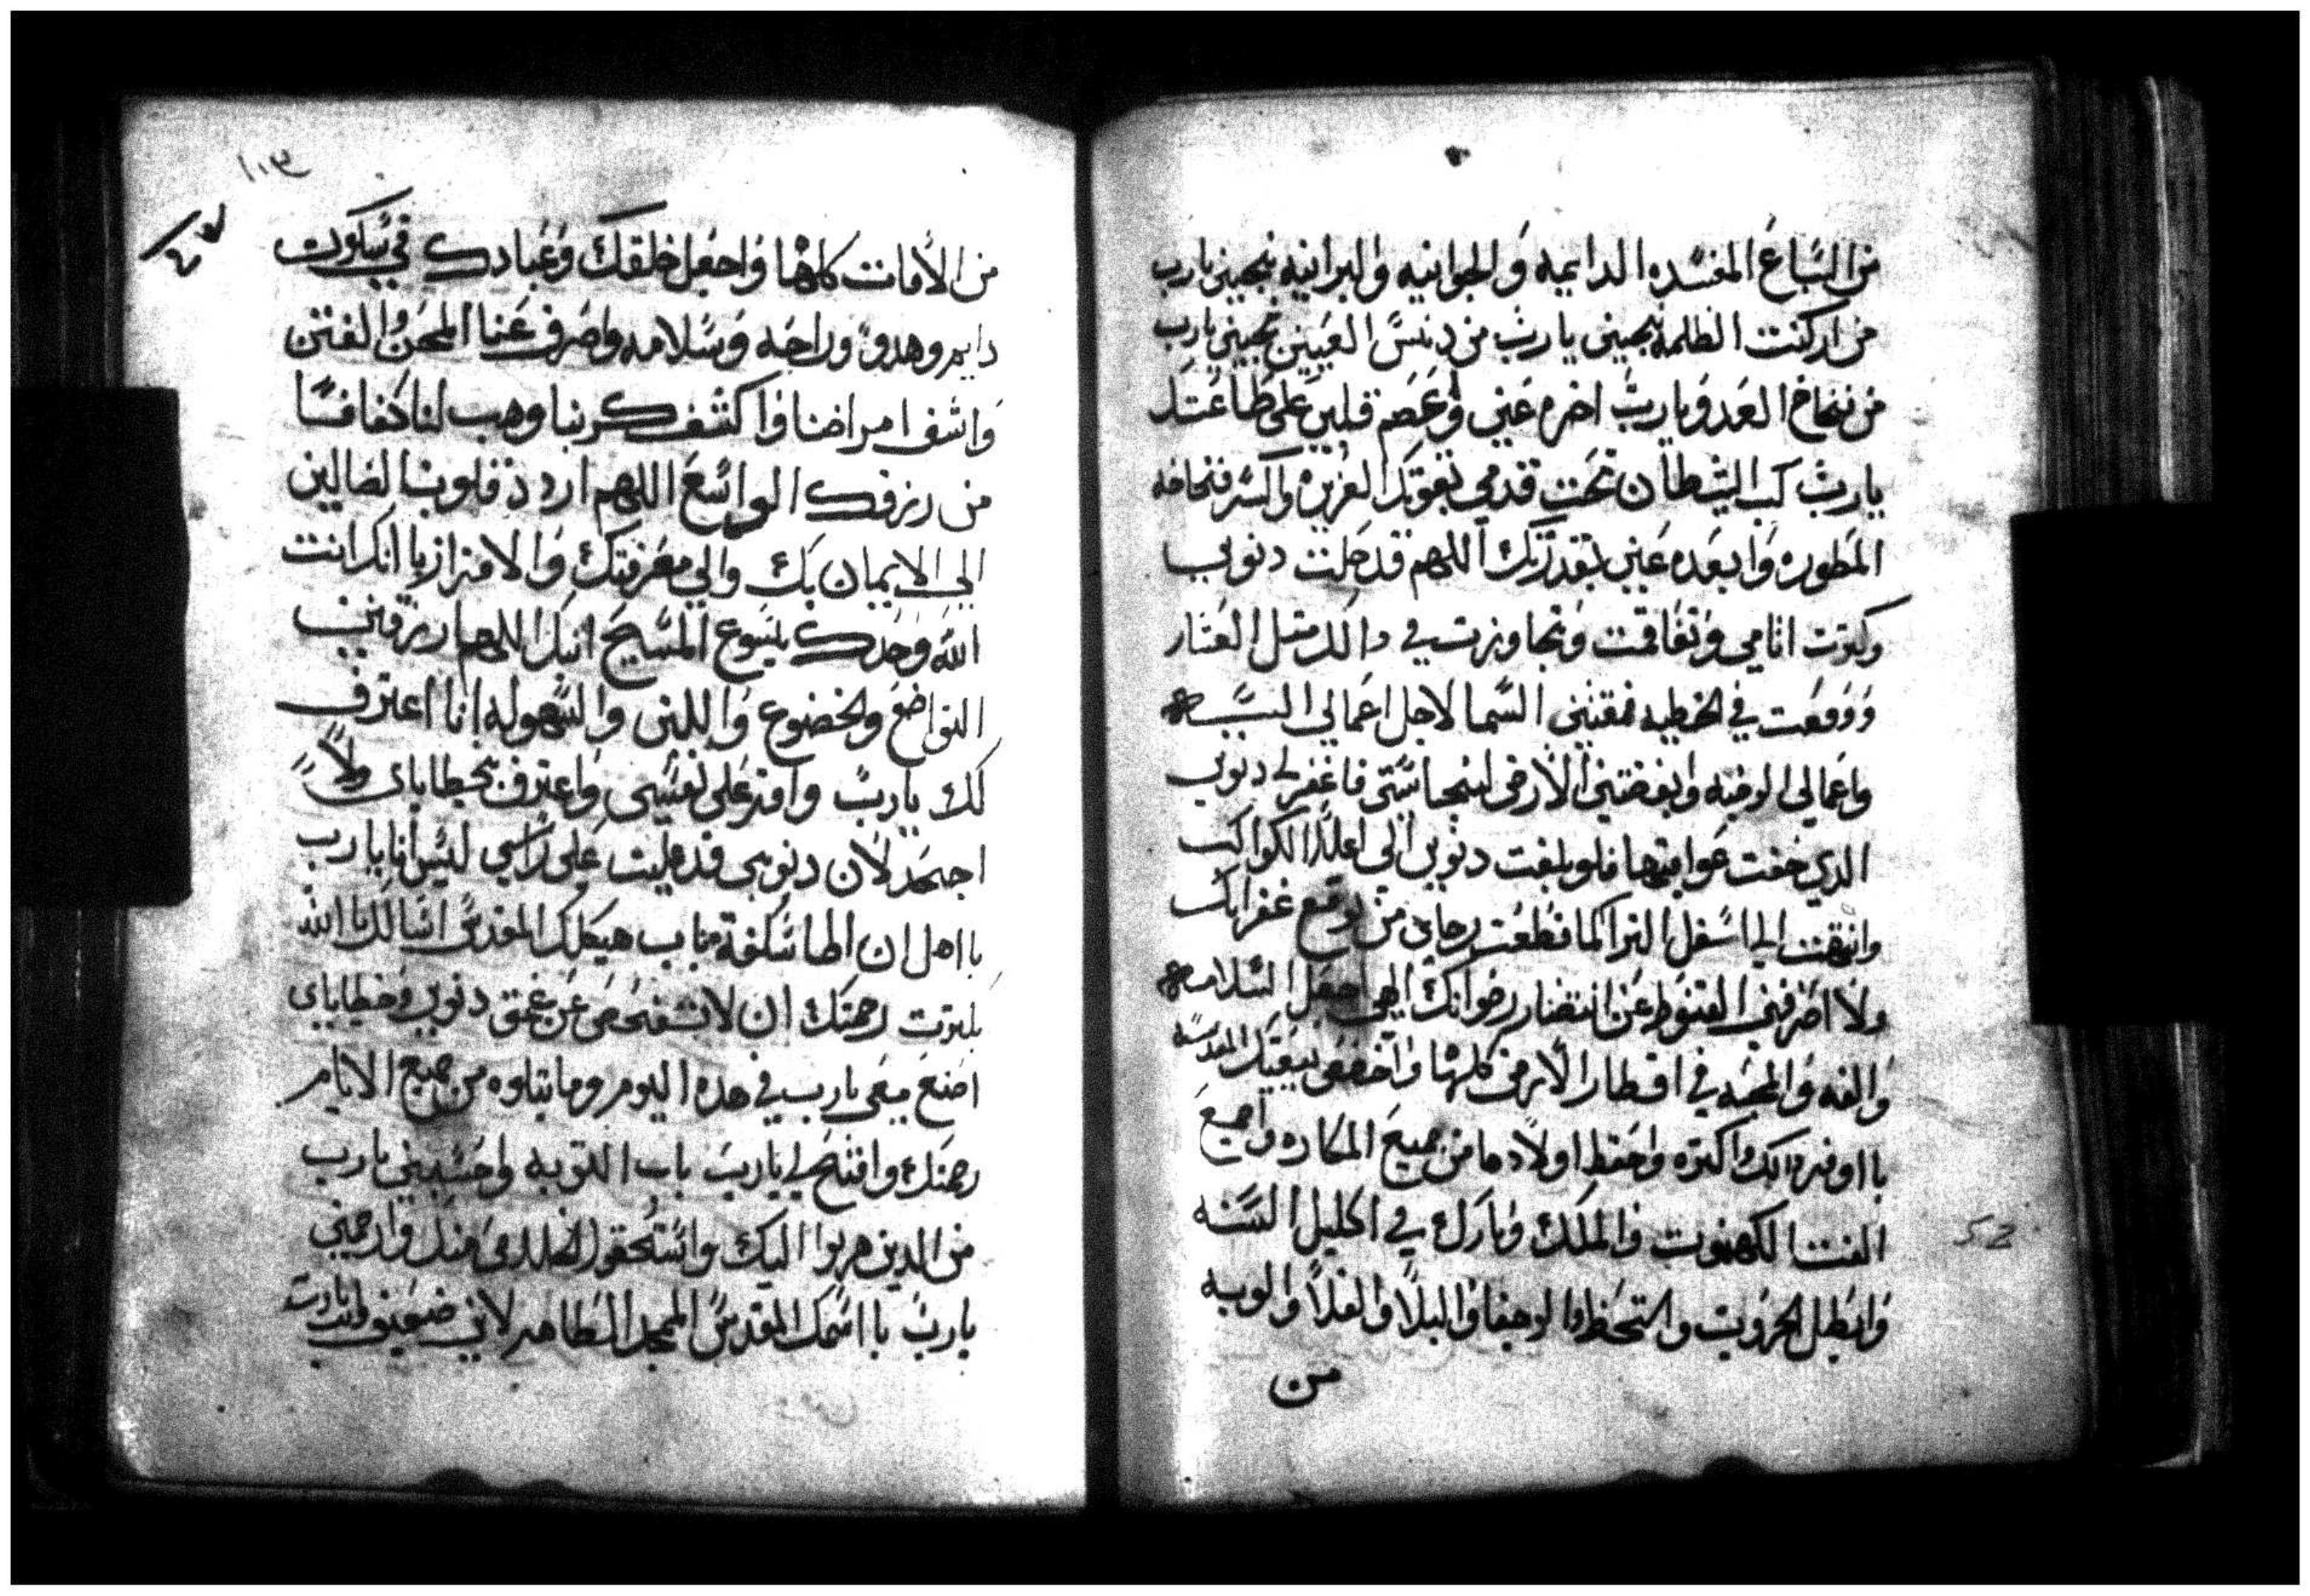 من السباع المفسده الدايميه والجوانيه والبرانيه نجيني يارب
من اركنت الظلمه نجيني يارب من دنس العيبين نجيني يارب
من فخاخ العدو يارب اخزه عني وعصم قلبي على طاعتك
يارب كب الشيطان تحت قدمي بقوتك العزيزه واكسر فخاخه
المطوره وابعده عني بقدرتك اللهم قد جلت دنوبي
وكترت اتامي وتفاقمت وتجاوزت في دالك متل العتار
ووقعت في الخطيه فمقتتني السما لاجل اعمالي السيه
واعمالي الرديه وابغضتني الارض لنجاستي فاغفر لي دنوبي
الدي خفت عواقبها فلو بلغت دنوبي الى اعلا الكواكب
وانتهت الى اسفل الترا لما قطعت رجاي من توقع غفرانك
ولا اصرفني القنوط عن انتضار رضوانك الهي اجعل السلامه
والفه والمحبه في اقطار الارض كلها واخفض بيعتك المقدسه
با اوفر دالك واكتره واحفظ اولادها من جميع المكاره واجمع
الفت الكهنوت والملك وبارك في اكليل السنه
وابطل الحروب والتحظ والوجفا والبلا والغلا والوبه
من
١٠٣
من الافات كلها واجعل خلقك وعبادك في سكون
دايم وهدو وراحه وسلامه واصرف عنا المحن والفتن
واشف امراضنا واكشف كربنا وهب لنا كفافنا
من رزقك الواسع اللهم اردد قلوب الضالين
الى الايمان بك والى معرفتك والاقرار با انك انت
الله وحدك يسوع المسيح ابنك اللهم ارزقني
التواضع والخضوع واللين والسهوله انا اعترف
لك يارب واقر على نفسي واعترف بخطاياي ولا
اجحد لان دنوبي قد عليت على راسي ليس انا يارب
با اهل ان اطا سكفة باب هيكلك المقدس اسالك يا الله
بكترت رحمتك ان لا تفضحني عن عمق دنوبي وخطاياي
اصنع معي يارب في هده اليوم وما يتلوه من جميع الايام
رحمتك وافتح لي يارب باب التوبه واحسبني يارب
من الدين هربوا اليك واستحقوا الخلاص منك وارحمني
يارب با اسمك المقدس الممجد الطاهر لاني ضعيف وانت يارب
52